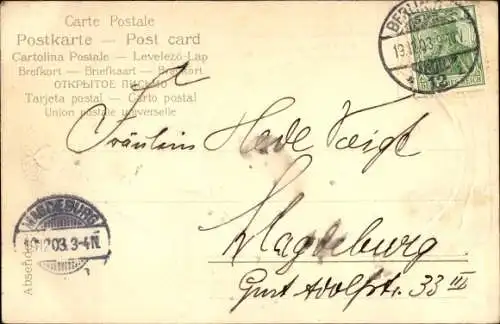 Carte Postale
Postkarte — Post card
Cartolina Postale — Levelező-Lap
Brefkort — Briefkaart — Brevkort
ОТКРЫТОЕ ПИСЬМО
Tarjeta postal — Carto postal
Union postale universelle
BERLIN
Fräulein Hede Voigt
MAGDEBURG
19.12.03.3-4N.
Absender
Magdeburg
Gust Adolfstr. 33 III